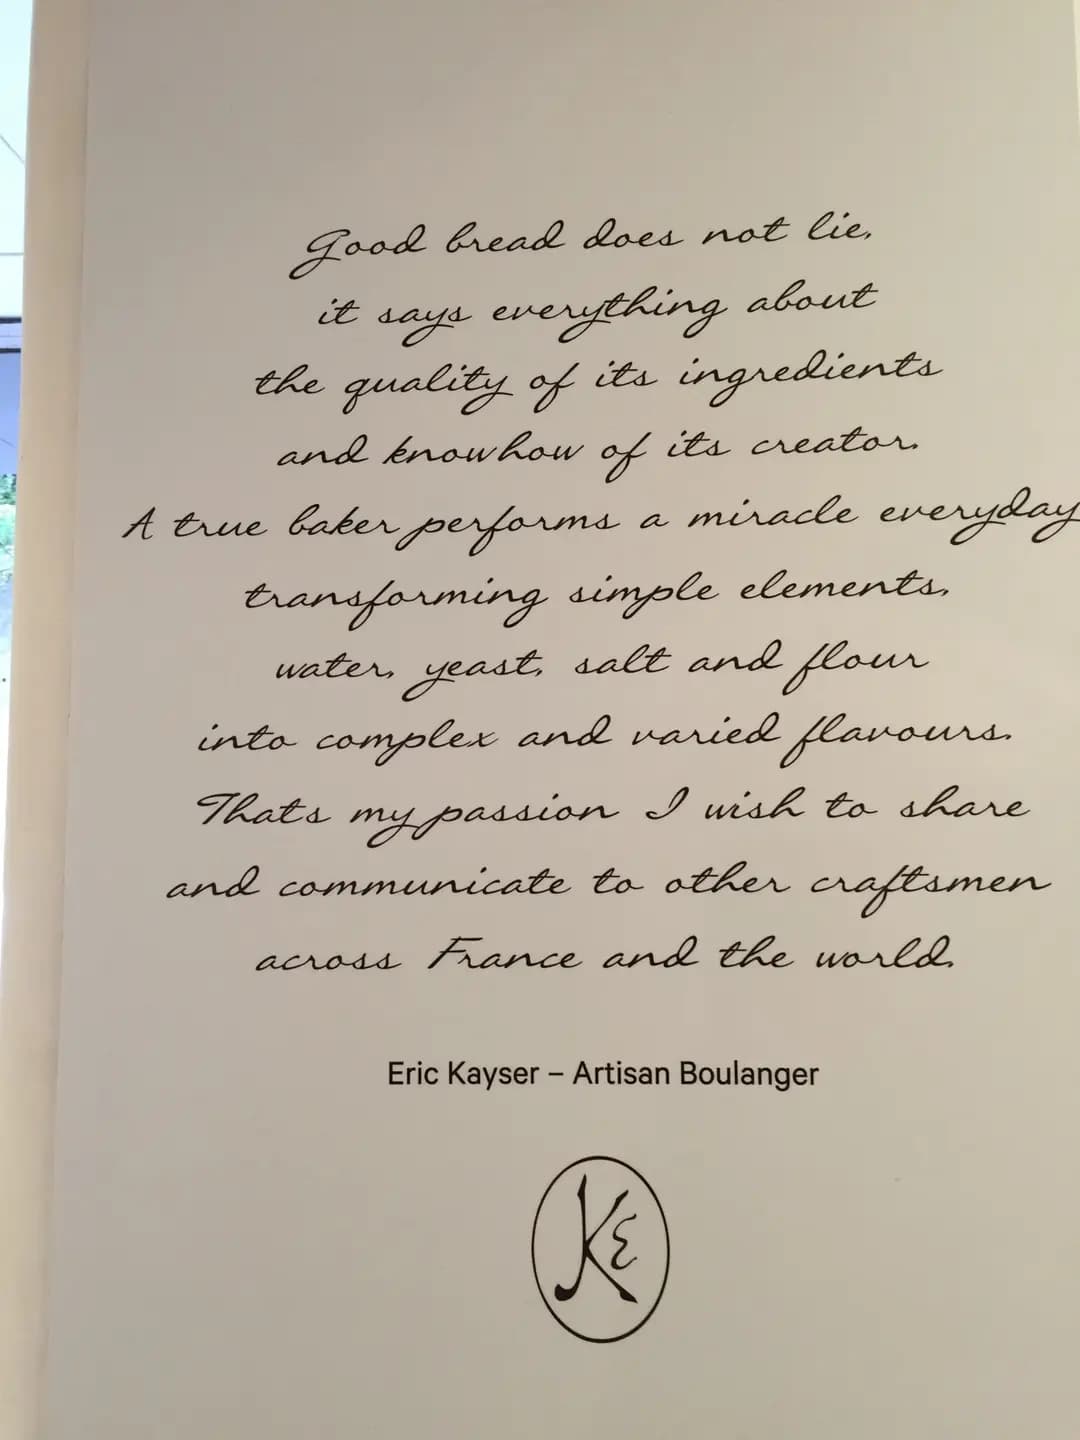 Good bread does not lie,
it says everything about
the quality of its ingredients
and knowhow of its creator.
A true baker performs a miracle everyday
transforming simple elements,
water, yeast, salt and flour
into complex and varied flavours.
Thats my passion I wish to share
and communicate to other craftsmen
across France and the world.
Eric Kayser – Artisan Boulanger
KE